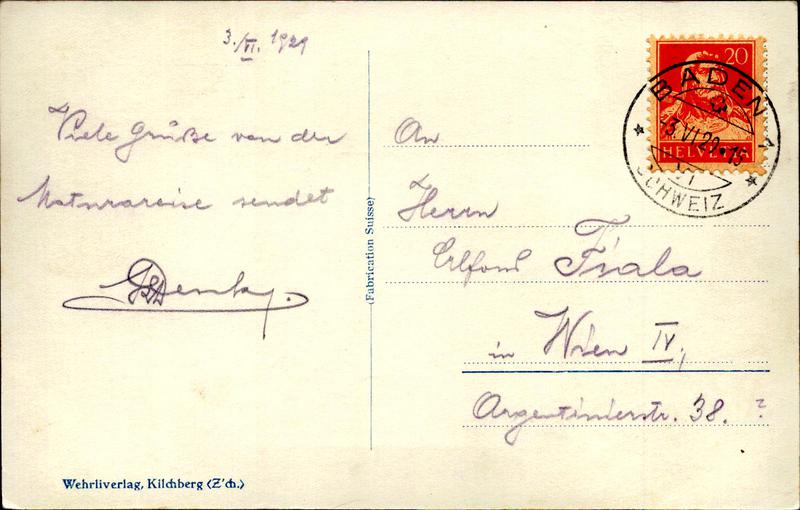 3./VI. 1929
Viele Grüße von der
Maturareise sendet
An
Herrn
Alfons Fiala
in Wien IV,
Argentinierstr. 38. ?
(Fabrication Suisse)
Wehrliverlag, Kilchberg (Z'ch.)
20
HELVETIA
BADEN 1
3.VI.29.15
SCHWEIZ